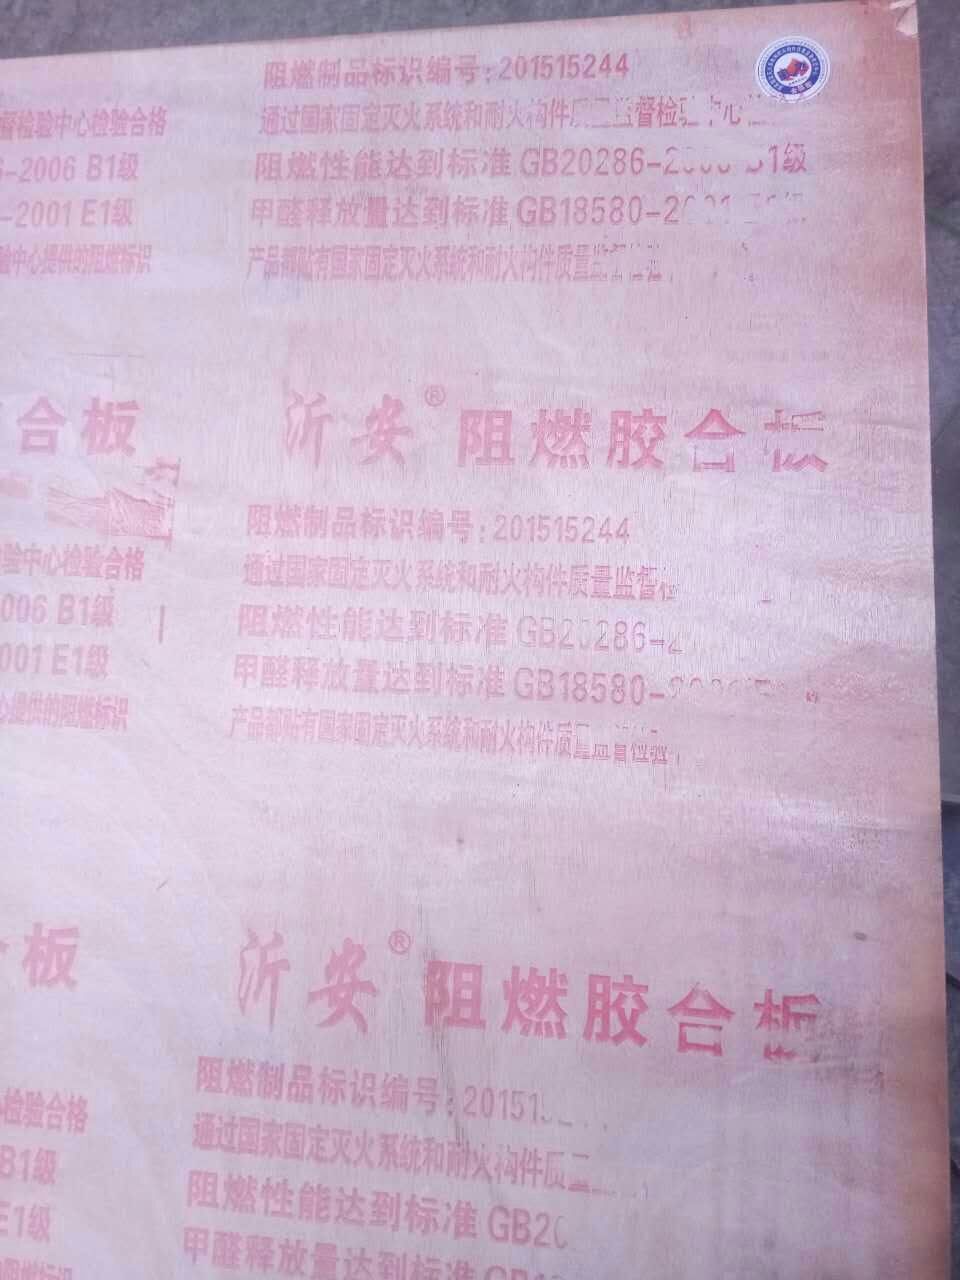 阻燃制品标识编号:201515244
督检验中心检验合格 通过国家固定灭火系统和耐火构件质 监督检验中心
-2006 B1级 阻燃性能达到标准 GB20286-2006 B1级
-2001 E1级 甲醛释放量达到标准 GB18580-2001 E1级
验中心提供的阻燃标识 产品都贴有国家固定灭火系统和耐火构件质量监督检验
合板 沂安® 阻燃胶合板
阻燃制品标识编号:201515244
验中心检验合格 通过国家固定灭火系统和耐火构件质量监督检
006 B1级 阻燃性能达到标准 GB20286-2
001 E1级 甲醛释放量达到标准 GB18580-
心提供的阻燃标识 产品都贴有国家固定灭火系统和耐火构件质量监督检验
合板 沂安® 阻燃胶合板
阻燃制品标识编号:20151
检验合格 通过国家固定灭火系统和耐火构件质
B1级 阻燃性能达到标准 GB20
E1级 甲醛释放量达到标准
阻燃标识